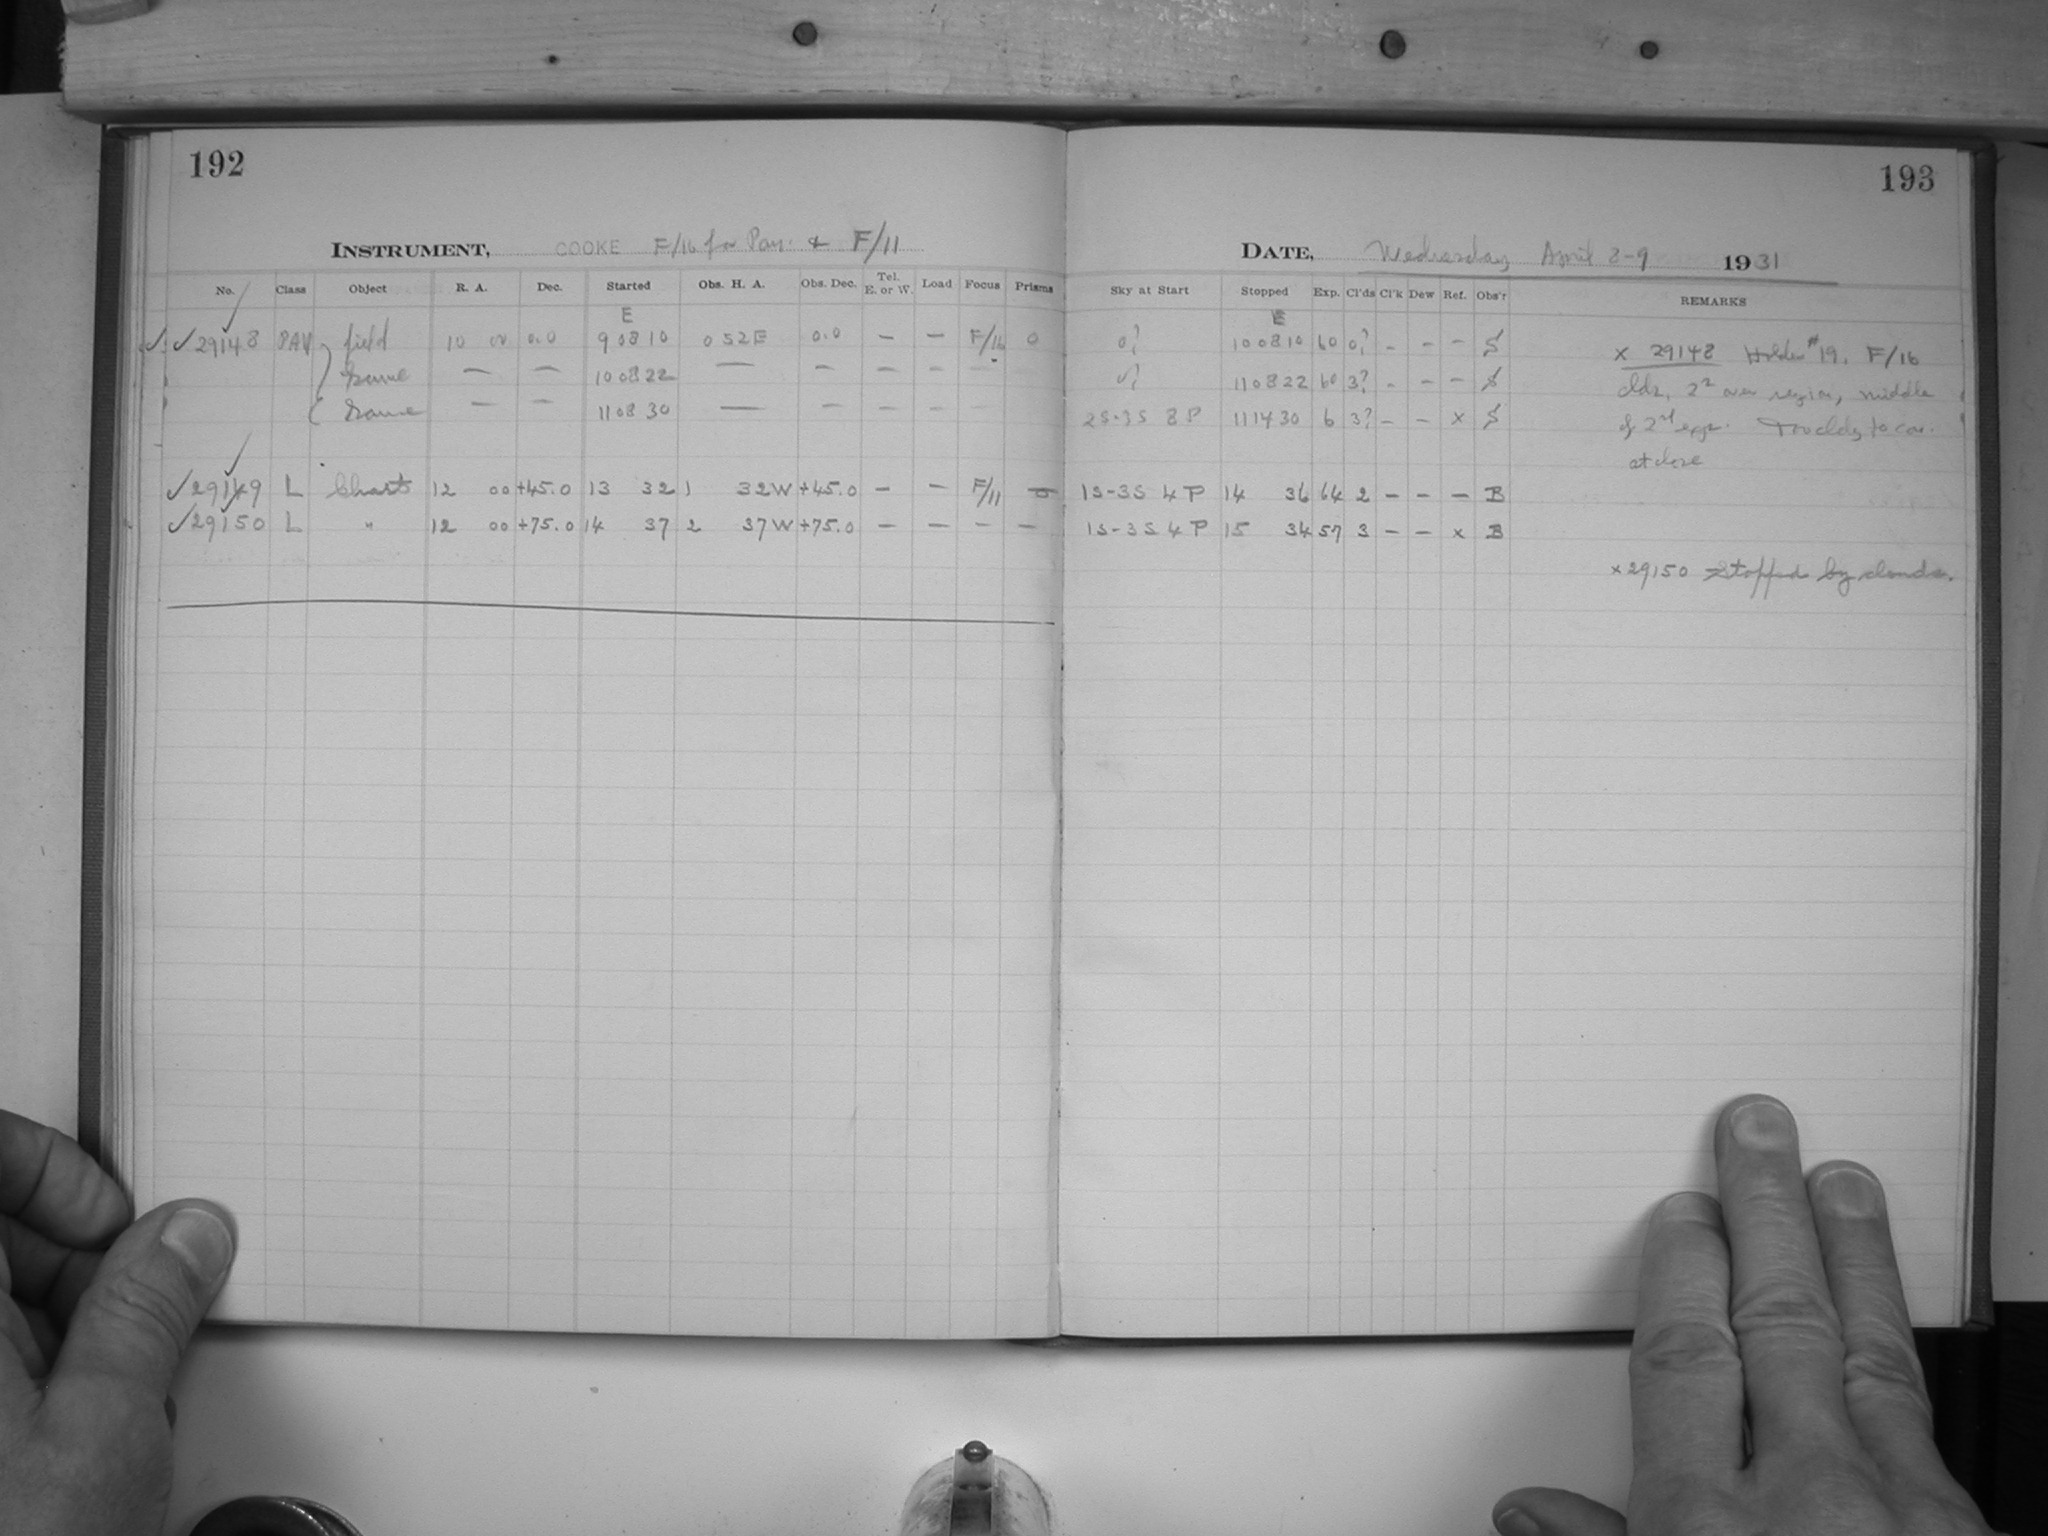 192
INSTRUMENT, COOKE F/16 for Pav. & F/11
No. Class Object R. A. Dec. Started Obs. H. A. Obs. Dec. Tel. E. or W. Load Focus Prisms
E
✓ ✓ 29148 PAV field 10 00 0.0 9 08 10 0 52E 0.0 — — F/16 0
Same — — 10 08 22 — — — —
Same — — 11 08 30 — — — —
✓ 29149 L Chart 12 00 +45.0 13 32 1 32W +45.0 — — F/11 0
✓ 29150 L " 12 00 +75.0 14 37 2 37W +75.0 — — — —
193
DATE, Wednesday April 8-9 1931
Sky at Start Stopped Exp. Cl'ds Cl'k Dew Ref. Obs'r REMARKS
E
0? 10 08 10 60 0? - - - S
0? 11 08 22 60 3? - - - S
2S-3S 8P 11 14 30 6 3? - - x S
1S-3S 4 P 14 36 64 2 - - - B
1S-3S 4 P 15 34 57 3 - - x B
x 29148 Holder #19. F/16
clds, over region, middle
of 2nd exp. cldy to
at close
x 29150 Stopped by clouds.